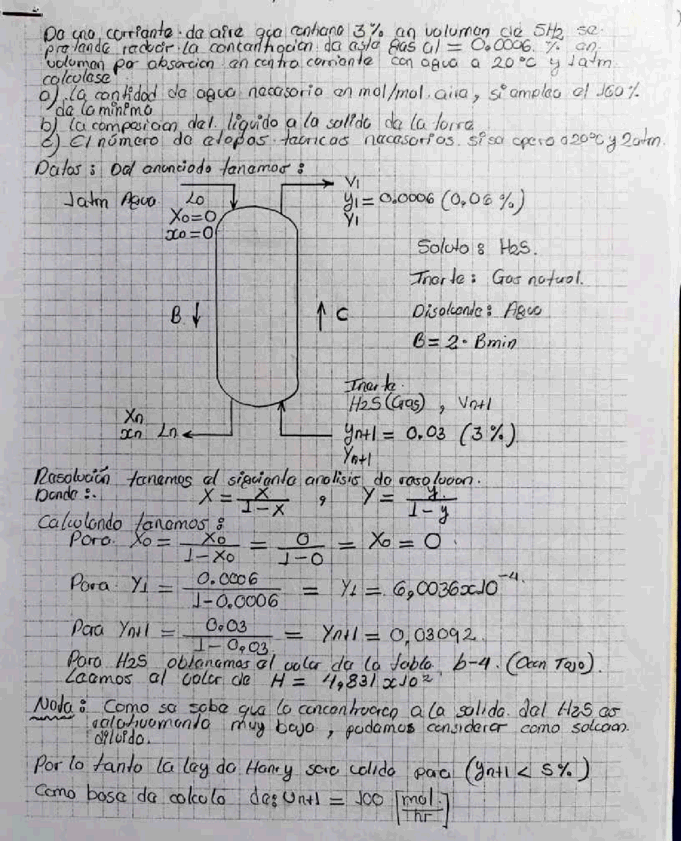 De una corriente de aire que contiene 3% en volumen de SH2 se
pretende reducir la concentración de este gas al = 0.0006. % en
volumen por absorción en contra corriente con agua a 20°C y 1atm.
calculese:
a) la cantidad de agua necesario en mol/mol. aire, si emplea el 160%
de la mínimo
b) la composicion del líquido a la salida de la torre
c) El número de etapas teoricas necesarios si se opera a 20°C y 2atm.
Datos: Del enunciado tenemos:
1atm Agua L0
X0=0
x0=0
V1
y1 = 0.0006 (0,06 %)
Y1
Soluto: H2S.
Inerte: Gas natural.
Disolvente: Agua
B = 2 · Bmin
B ↓
↑ C
Inerte.
H2S (Gas) , Vn+1
yn+1 = 0.03 (3%)
Yn+1
Xn
xn Ln
Resolución tenemos el siguiente analisis de resolucion.
Donde:. X = x/1-x , Y = y/1-y
Calculando tenemos:
Para. X0 = x0/1-x0 = 0/1-0 = X0 = 0.
Para Y1 = 0.0006/1-0.0006 = Y1 = 6,0036x10⁻⁴.
Para Yn+1 = 0,03/1-0,03 = Yn+1 = 0,03092.
Para H2S obtenemos el valor de la tabla b-4. (Ocon Tojo).
Leemos el valor de H = 4,831 x10²
Nota: Como se sabe que la concentracion a la salida. del H2S es
relativamente muy bajo, podemos considerar como solcion
diluido.
Por lo tanto la ley de Henry sera valido para (yn+1 < 5%)
Como base de calculo de: Vn+1 = 100 [mol./hr]